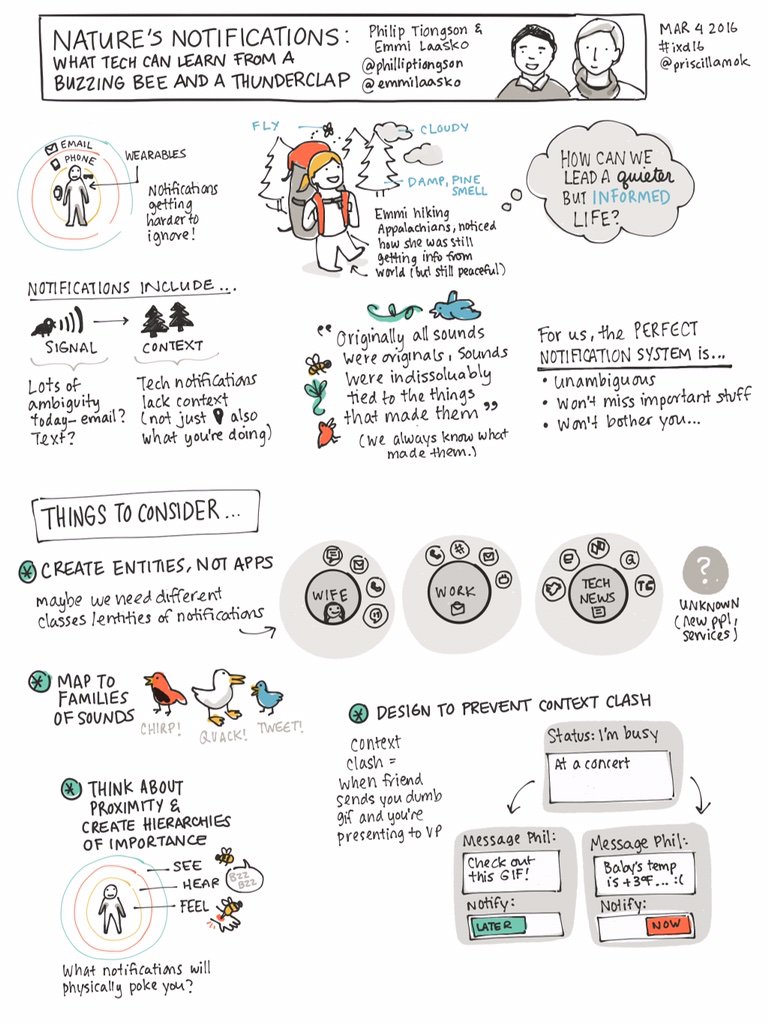 NATURE'S NOTIFICATIONS:
WHAT TECH CAN LEARN FROM A
BUZZING BEE AND A THUNDERCLAP
Philip Tiongson &
Emmi Laasko
@philliptiongson
@emmilaasko
MAR 4 2016
#ixd16
@priscillamok
EMAIL
PHONE
WEARABLES
Notifications
getting
harder to
ignore!
FLY
CLOUDY
DAMP, PINE
SMELL
Emmi hiking
Appalachians, noticed
how she was still
getting info from
world (but still peaceful)
HOW CAN WE
LEAD A quieter
BUT INFORMED
LIFE?
NOTIFICATIONS INCLUDE...
SIGNAL
CONTEXT
Lots of
ambiguity
today-email?
Text?
Tech notifications
lack context
(not just also
what you're doing)
"Originally all sounds
were originals, Sounds
were indissoluably
tied to the things
that made them"
(we always know what
made them.)
For us, the PERFECT
NOTIFICATION SYSTEM is...
• unambiguous
• Won't miss important stuff
• Won't bother you...
THINGS TO CONSIDER...
CREATE ENTITIES, NOT APPS
maybe we need different
classes/entities of notifications
WIFE
#
WORK
TECH
NEWS
TC
?
UNKNOWN
(new ppl,
services)
MAP TO
FAMILIES
OF SOUNDS
CHIRP!
QUACK!
TWEET!
THINK ABOUT
PROXIMITY &
CREATE HIERARCHIES
OF IMPORTANCE
SEE
HEAR
BZZ
BZZ
FEEL
What notifications will
physically poke you?
DESIGN TO PREVENT CONTEXT CLASH
context
clash =
when friend
sends you dumb
gif and you're
presenting to VP
Status: I'm busy
At a concert
Message Phil:
Check out
this GIF!
Notify:
LATER
Message Phil:
Baby's temp
is +3°F... :(
Notify:
NOW